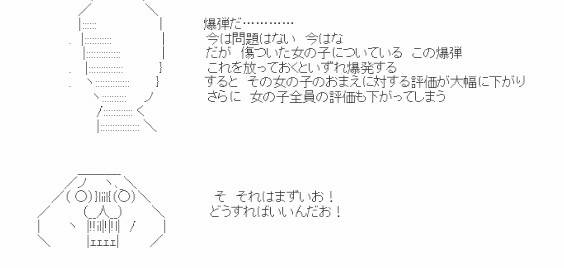 爆弾だ…………
今は問題はない　今はな
だが　傷ついた女の子についている　この爆弾
これを放っておくといずれ爆発する
すると　その女の子のおまえに対する評価が大幅に下がり
さらに　女の子全員の評価も下がってしまう
そ　それはまずいお！
どうすればいいんだお！